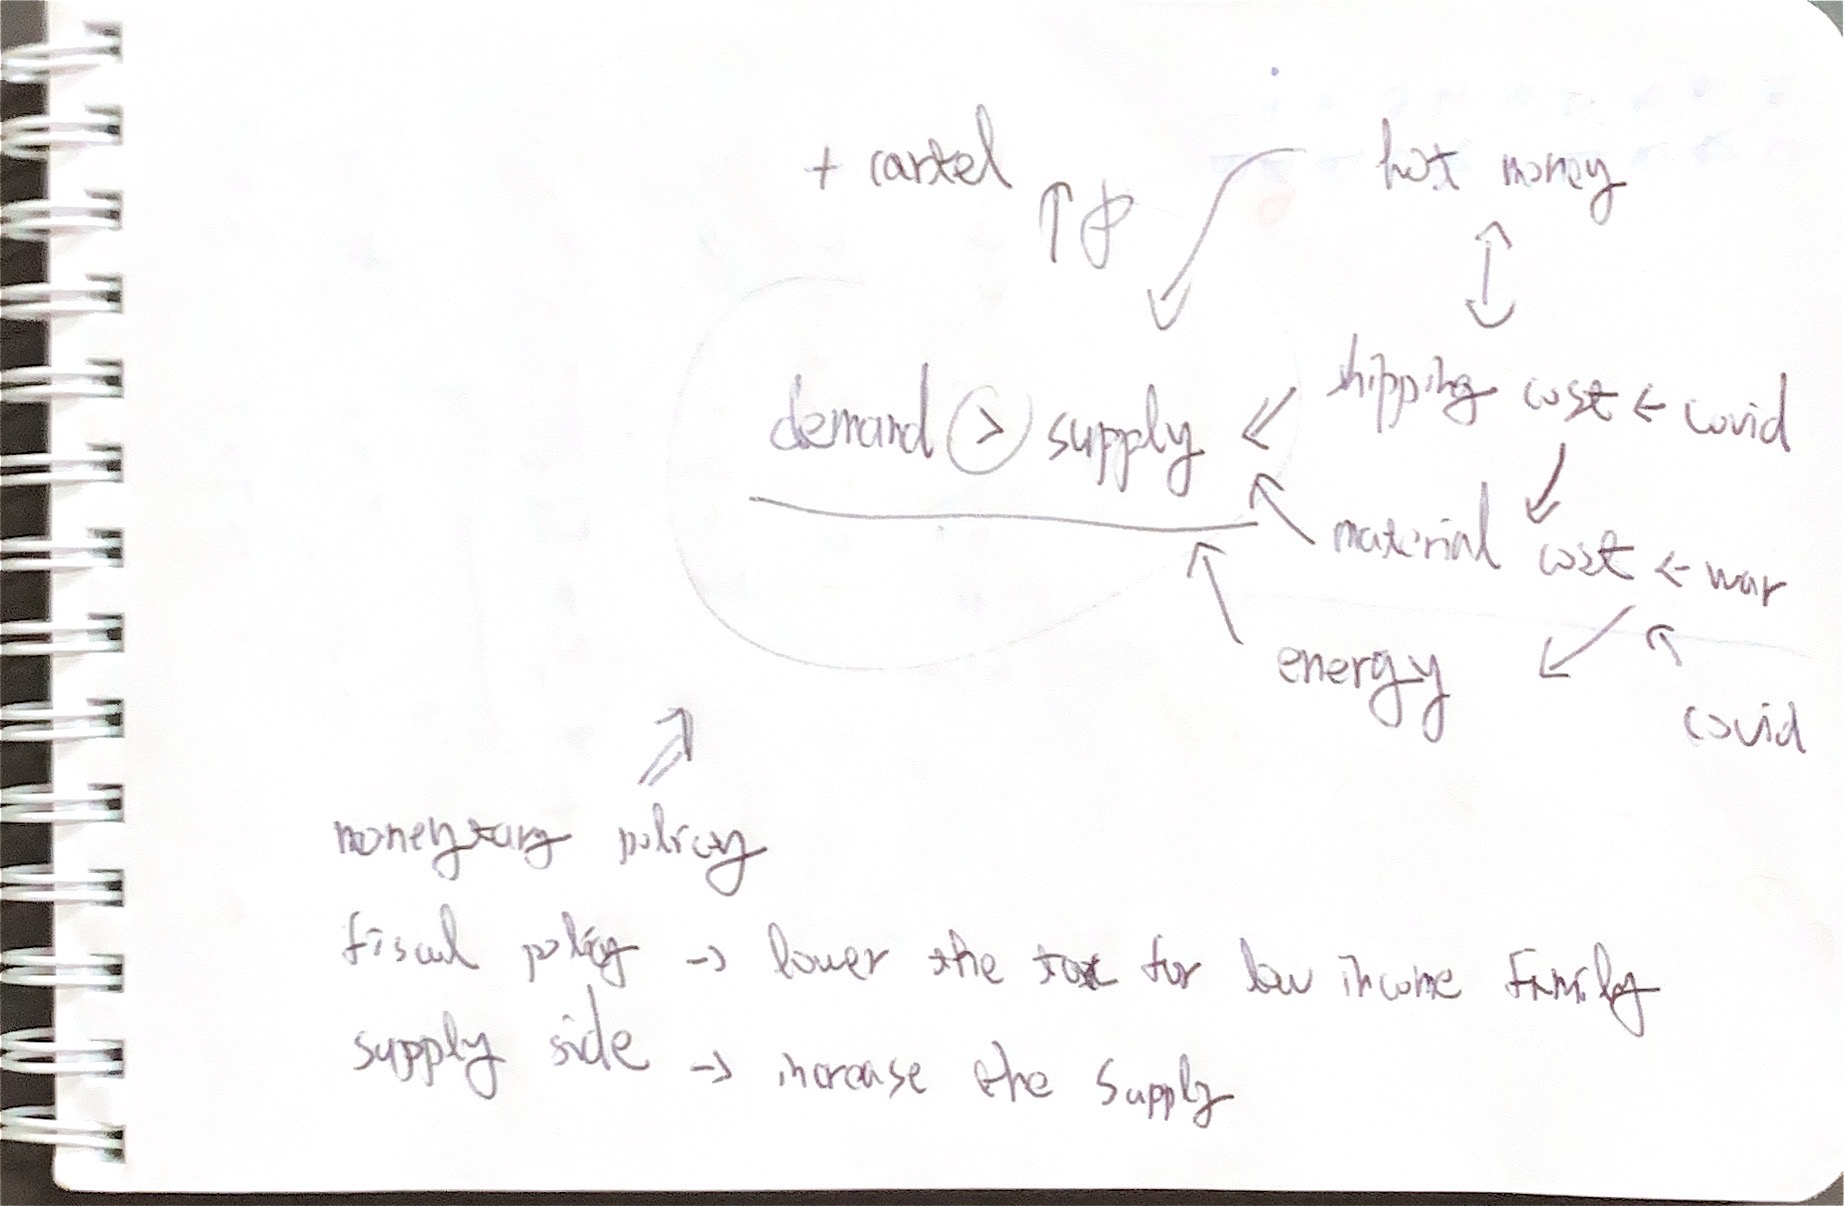 + cartel
hot money
↑ $
↕
demand > supply ← shipping cost ← covid
material cost ← war
energy
covid
moneytary policy
fiscal policy → lower the tax for low income family
supply side → increase the supply